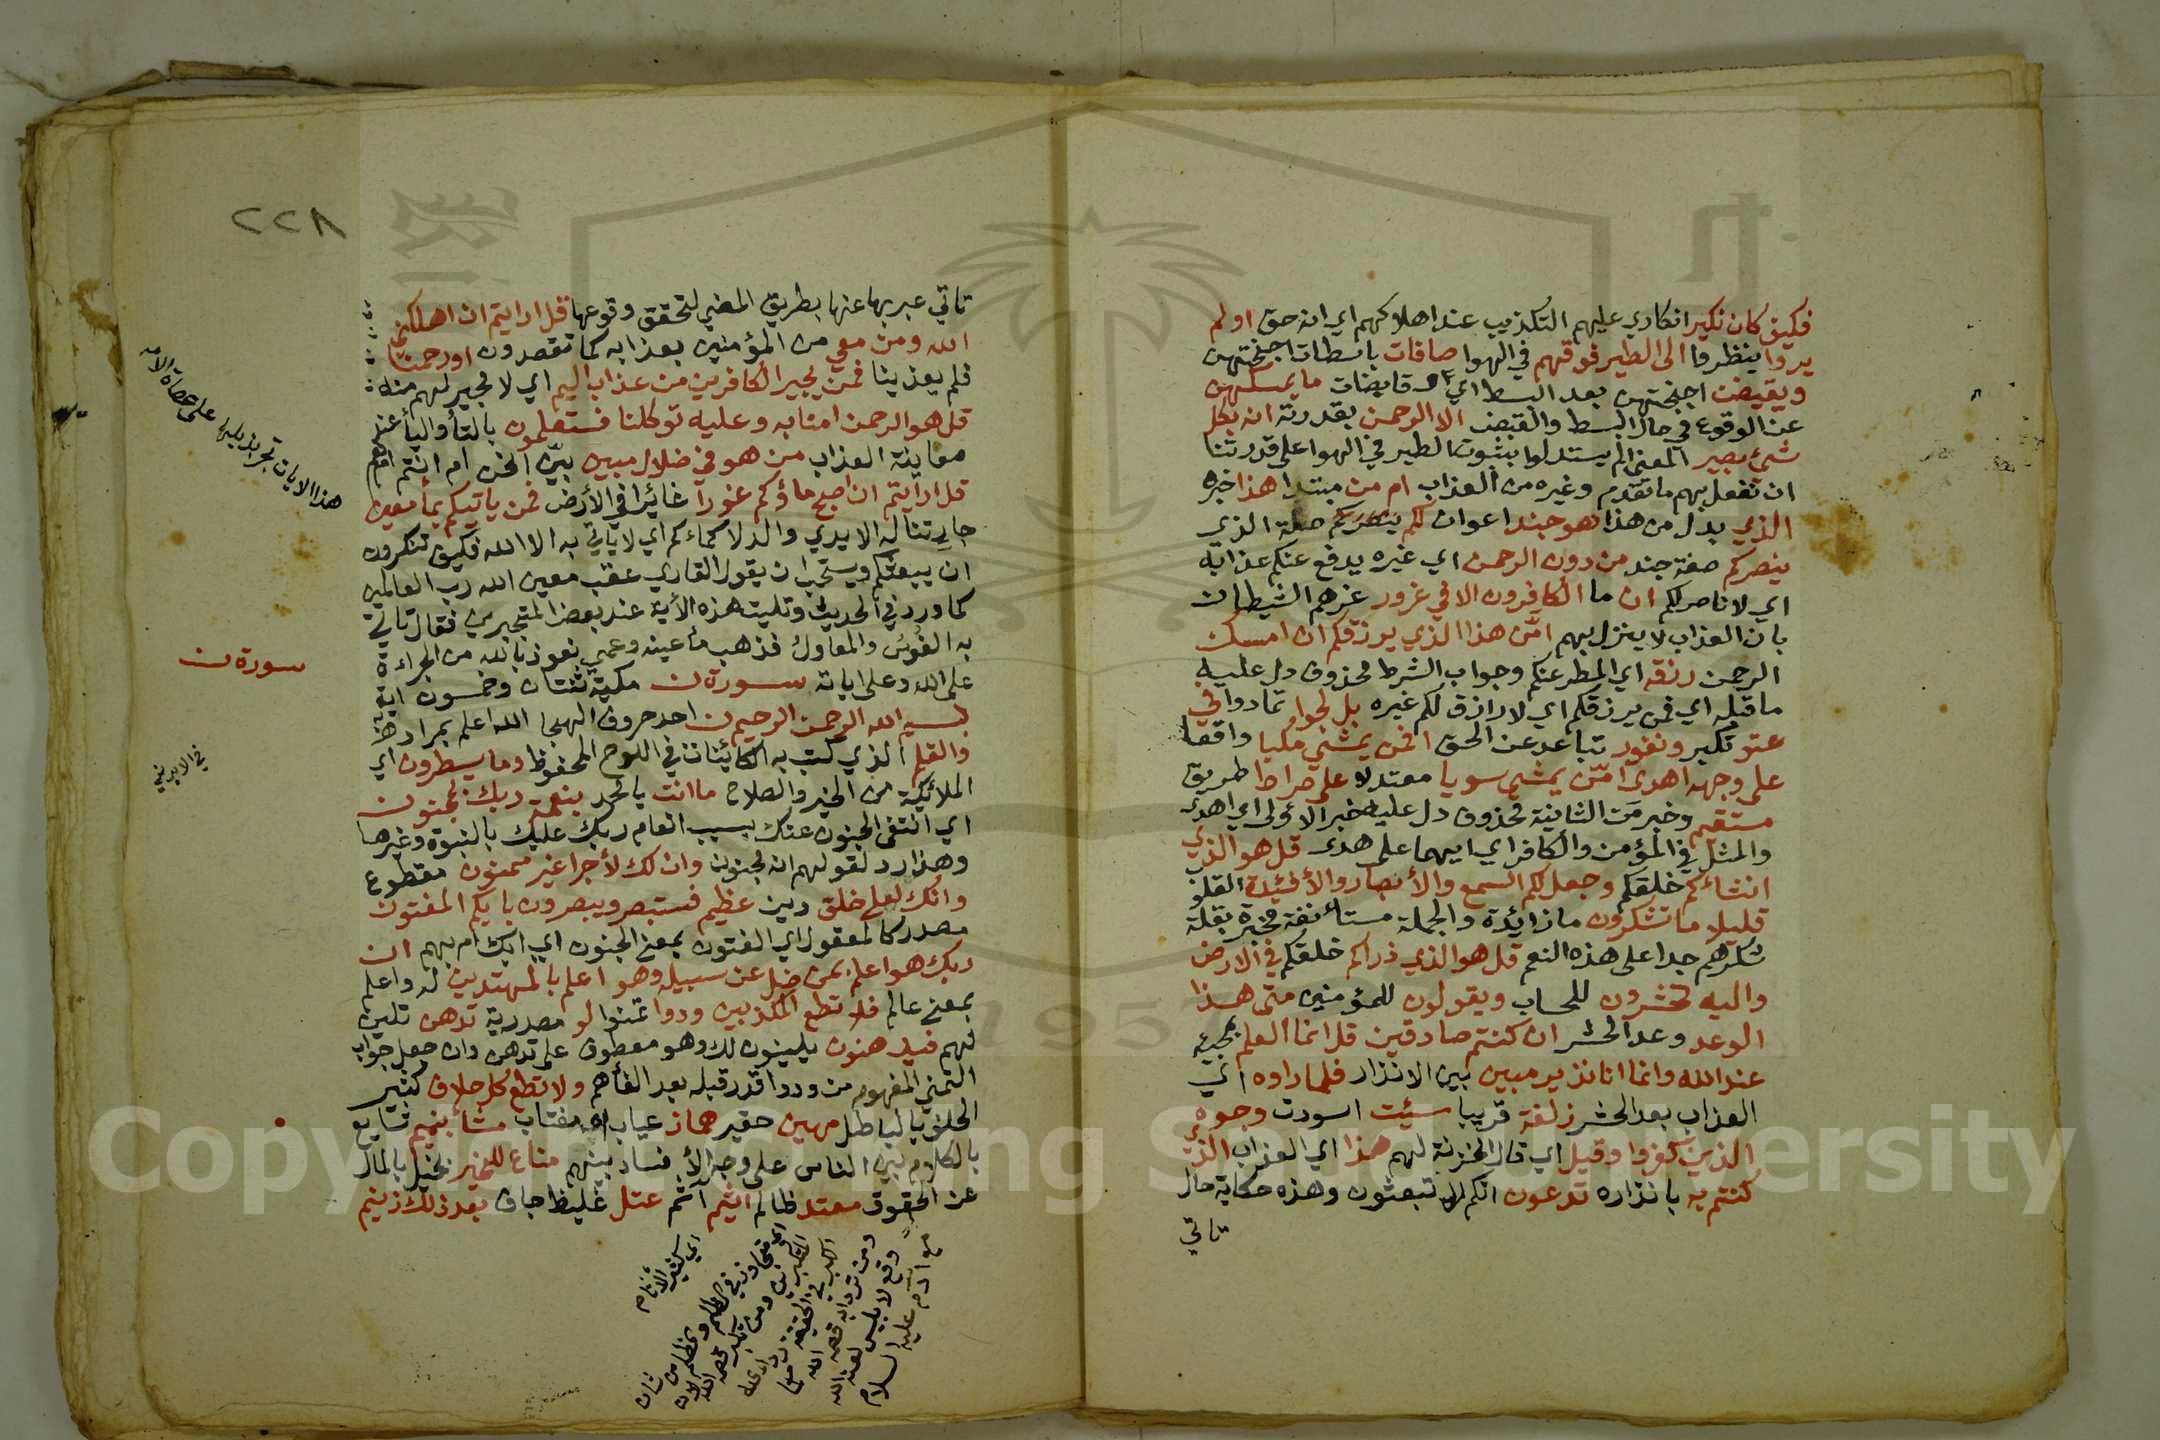 فكيف كان نكير انكاري عليهم التكذيب عند اهلاكهم اي انه حق اولم
يروا ينظروا الى الطير فوقهم في الهوا صافات باسطات اجنحتهن
ويقبضن اجنحتهن بعد البسط اي قابضات ما يمسكهن
عن الوقوع في حال البسط والقبض الا الرحمن بقدرته انه بكل
شيئ بصير المعنى الم يستدلوا بثبوت الطير في الهوا على قدرتنا
ان نفعل بهم ما تقدم وغيره من العذاب ام من مبتدا هذا خبره
الذي بدل من هذا هو جند اعوان لكم ينصركم صفة الذي
ينصركم صفة جند من دون الرحمن اي غيره يدفع عنكم عذابه
اي لا ناصر لكم ان ما الكافرون الا في غرور غرهم الشيطان
بان العذاب لا ينزل بهم امّن هذا الذي يرزقكم ان امسك
الرحمن رزقه اي المطر عنكم وجواب الشرط محذوف دل عليه
ما قبله اي فمن يرزقكم اي لا رازق لكم غيره بل لجوا تمادوا في
عتو تكبر ونفور تباعد عن الحق افمن يمشي مكبا واقعا
على وجهه اهدى امّن يمشي سويا معتدلا على صراط طريق
مستقيم وخبر مَن الثانية محذوف دل عليه خبر الاولى اي اهدى
والمثل في المؤمن والكافر اي ايهما على هدى قل هو الذي
انشاكم خلقكم وجعل لكم السمع والأبصار والأفئدة القلو
قليلا ما تشكرون ما زائدة والجملة مستأنفة مخبرة بقلة
شكرهم جدا على هذه النعم قل هو الذي ذراكم خلقكم في الارض
واليه تحشرون للحساب ويقولون للمؤمنين متى هذا
الوعد وعد الحشر ان كنتم صادقين قل انما العلم بمجيئه
عند الله وانما انا نذير مبين بين الانذار فلما راوه اي
العذاب بعد الحشر زلفة قريبا سيئت اسودت وجوه
الذين كفروا وقيل اي قال الخزنة لهم هذا اي العذاب الذي
كنتم به بانذاره تدعون انكم لا تبعثون وهذه حكاية حال
تاتي
٢٢٨
تاتي عبر بها عنها بطريق المضي لتحقق وقوعها قل ارايتم ان اهلكني
الله ومن معي من المؤمنين بعذابه كما تقصدون او رحمنا
فلم يعذبنا فمن يجير الكافرين من عذاب اليم اي لا مجير لهم منه
قل هو الرحمن امنا به وعليه توكلنا فستعلمون بالتاء والياء عند
معاينة العذاب من هو في ضلال مبين بيّن انحن ام انتم ام هم
قل ارأيتم ان اصبح ماؤكم غورا غائرا في الأرض فمن ياتيكم بماء معين
جار تناله الايدي والدلا كمائكم اي لا ياتي به الا الله فكيف تنكرون
ان يبعثكم ويستحب ان يقول القاري عقب معين الله رب العالمين
كما ورد في الحديث وتليت هذه الأية عند بعض المتجبرين فقال تاتي
به الفؤس والمعاول فذهب ماء عينه وعمي نعوذ بالله من الجراءة
على الله وعلى اياته سورة ن مكية ثنتان وخمسون اية
بسم الله الرحمن الرحيم ن احد حروف الهجا الله اعلم بمراده
والقلم الذي كتب به الكائنات في اللوح المحفوظ وما يسطرون اي
الملائكة من الخير والصلاح ما انت يا محمد بنعمة ربك بمجنون
اي انتفى الجنون عنك بسبب انعام ربك عليك بالنبوة وغيرها
وهذا رد لقولهم انه لمجنون وان لك لأجرا غير ممنون مقطوع
وانك لعلى خلق دين عظيم فستبصر ويبصرون بايكم المفتون
مصدر كالمعقول اي الفتون بمعنى الجنون اي ابك ام بهم ان
ربك هو اعلم بمن ضل عن سبيله وهو اعلم بالمهتدين له واعلم
بمعنى عالم فلا تطع المكذبين ودوا تمنوا لو مصدرية تدهن تلين
لهم فيدهنون يلينون لك وهو معطوف على تدهن وان جعل جواب
التمني المفهوم من ودوا قدر قبله بعد الفاء هم ولا تطع كل حلاف كثير
الحلف بالباطل مهين حقير هماز عياب اي مغتاب مشاء بنميم ساع
بالكلام بين الناس على وجه الأفساد بينهم مناع للخير بخيل بالمال
عن الحقوق معتد ظالم اثيم آثم عتل غليظ جاف بعد ذلك زنيم
هذا الايات تجر بذيلها على عصاة الامه
سورة ن
اي كثير الأثام
مع ادم عليه السلام
Copyright © King Saud University
1957